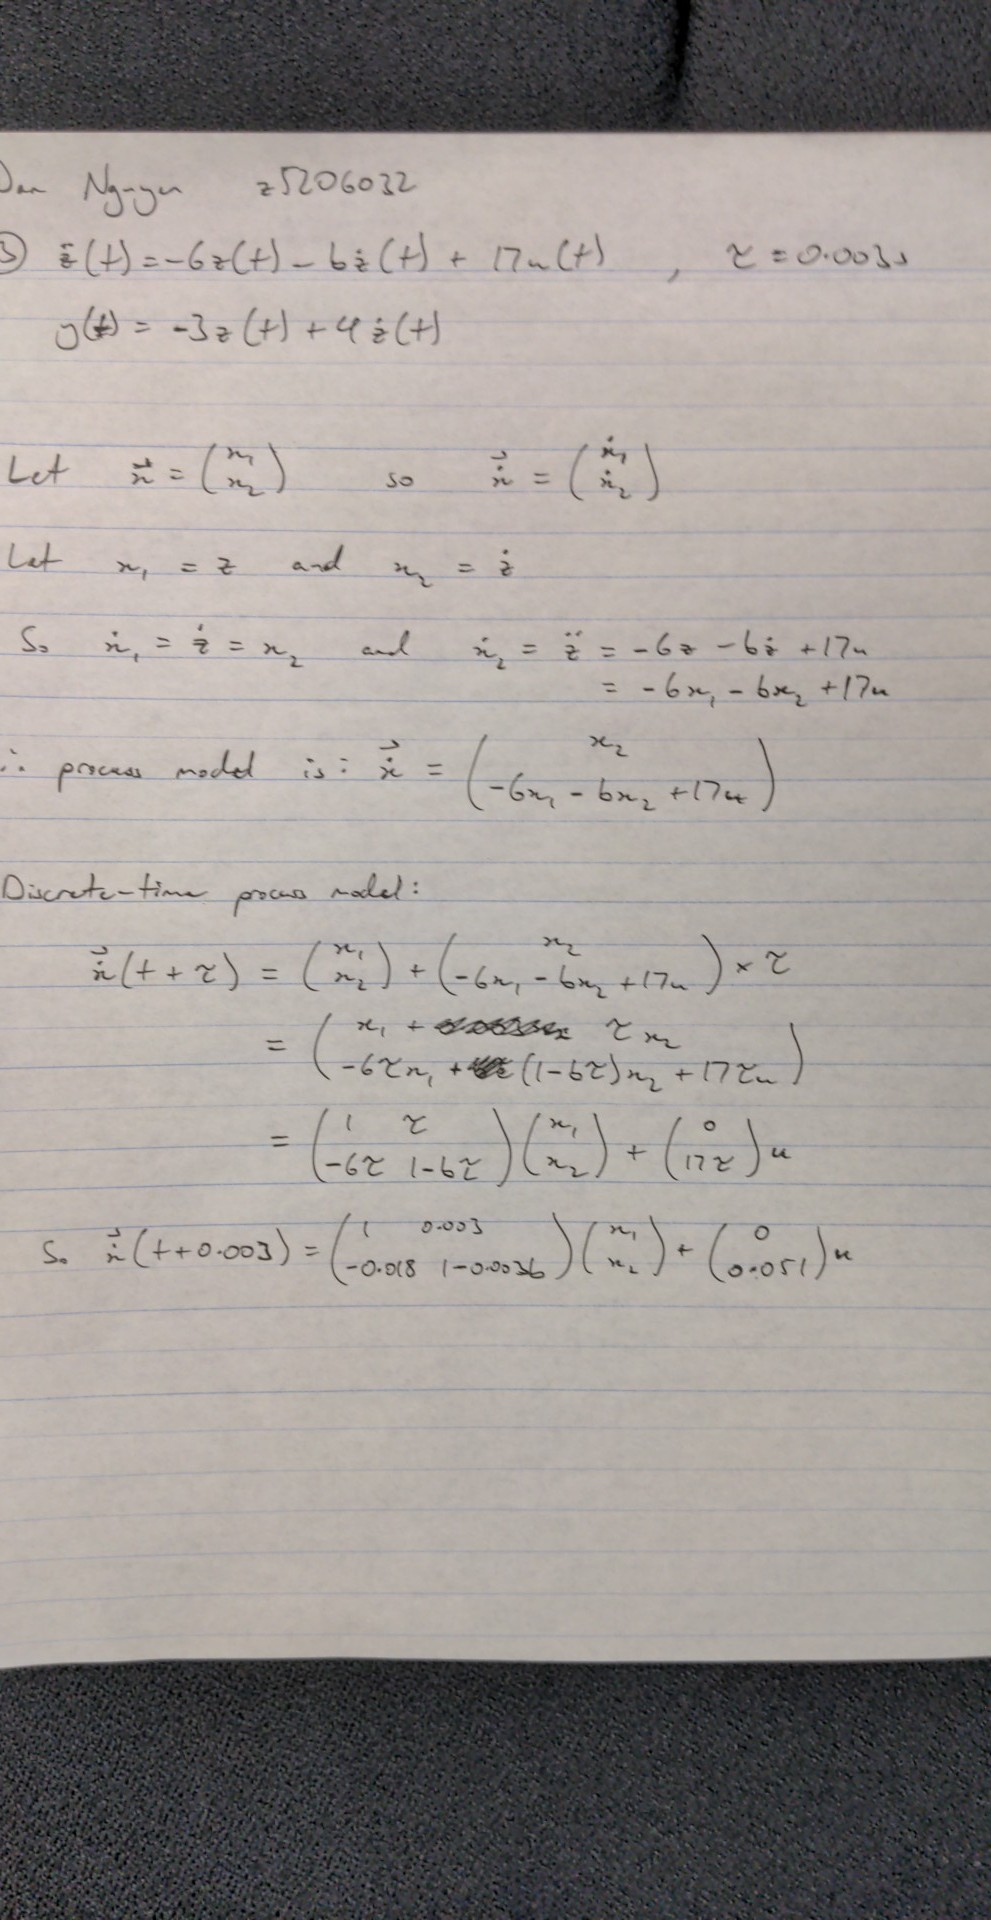 Dan Nguyen z5206032
③ z̈(t) = -6z(t) - 6ż(t) + 17u(t) , τ = 0.003s
y(t) = -3z(t) + 4ż(t)
Let x⃗ = (x₁ x₂) so ẋ⃗ = (ẋ₁ ẋ₂)
Let x₁ = z and x₂ = ż
So ẋ₁ = ż = x₂ and ẋ₂ = z̈ = -6z - 6ż + 17u
= -6x₁ - 6x₂ + 17u
∴ process model is: ẋ⃗ = (x₂ -6x₁ - 6x₂ + 17u)
Discrete-time process model:
ẋ⃗(t + τ) = (x₁ x₂) + (x₂ -6x₁ - 6x₂ + 17u) × τ
= (x₁ + τx₂ -6τx₁ + (1-6τ)x₂ + 17τu)
= (1 τ -6τ 1-6τ)(x₁ x₂) + (0 17τ)u
So ẋ⃗(t+0.003) = (1 0.003 -0.018 1-0.0036)(x₁ x₂) + (0 0.051)u